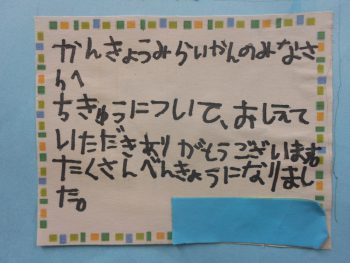 かんきょうみらいかんのみなさ
んへ
ちきゅうについて、おしえて
いただきありがとうございます。
たくさんべんきょうになりまし
た。